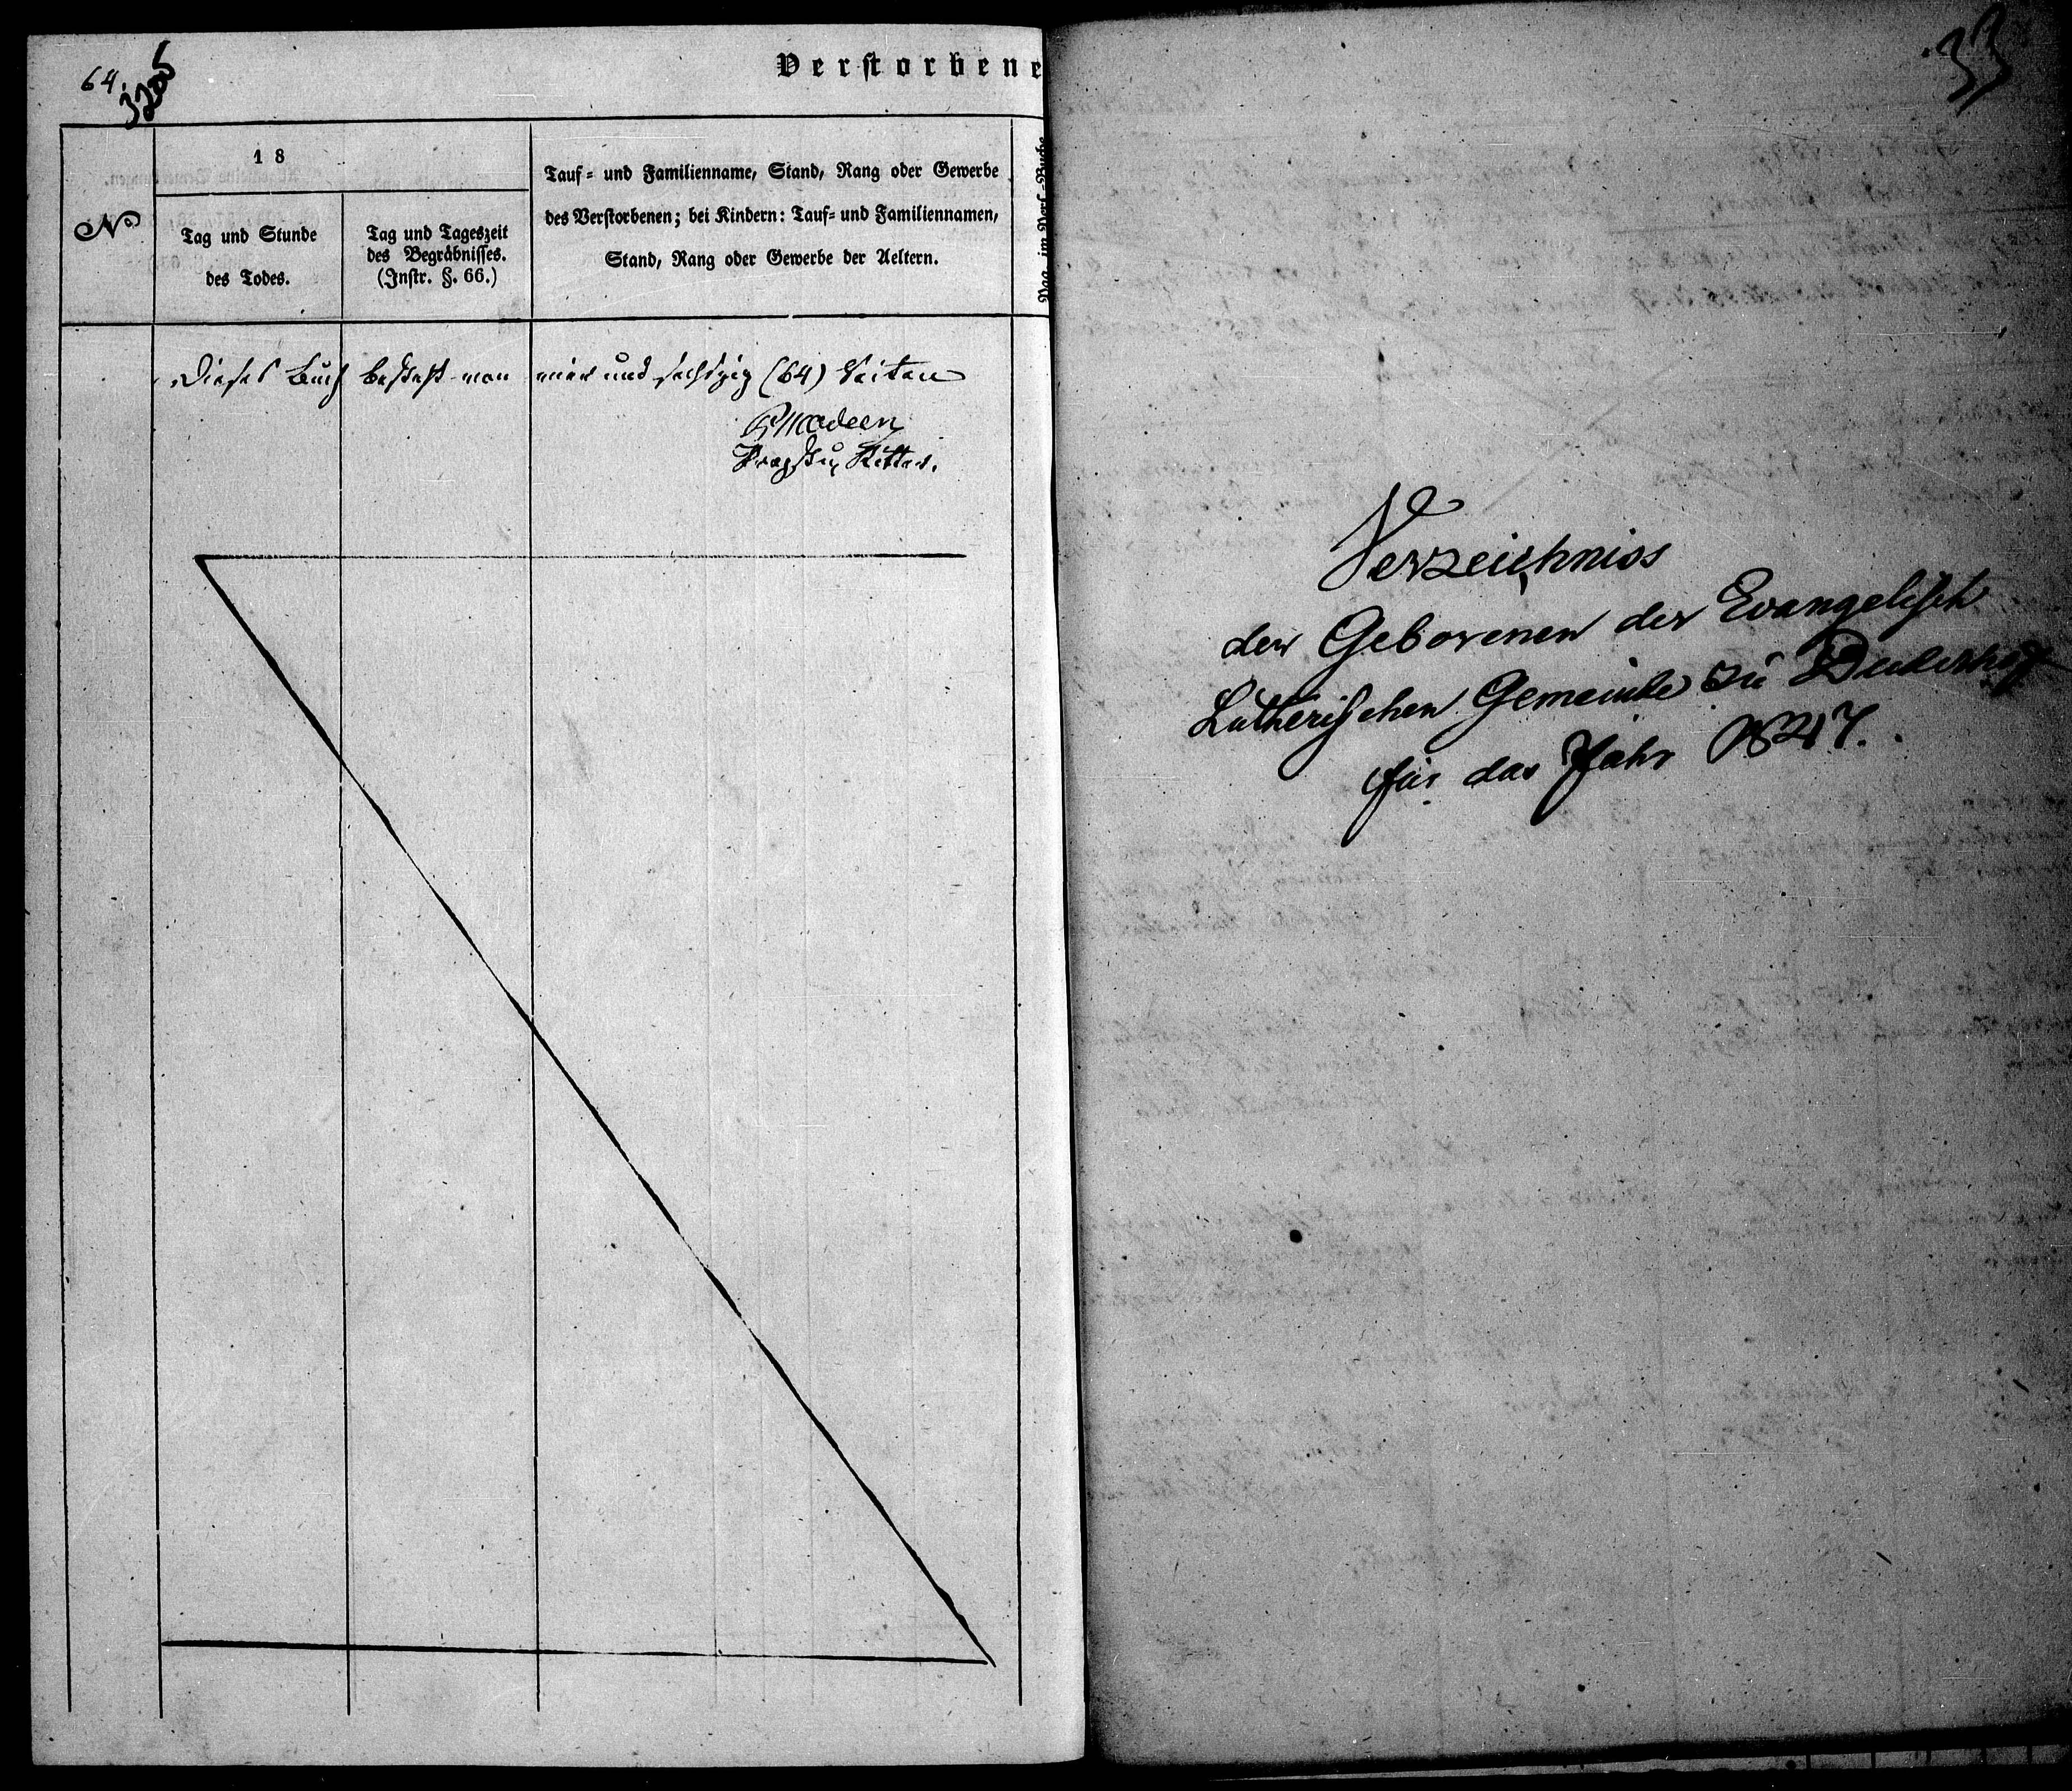 64.
Verstorbene
No
18
Tag und Stunde
des Todes.
Tag und Tageszeit
des Begräbnisses.
(Instr. §. 66.)
Tauf= und Familienname, Stand, Rang oder Gewerbe
des Verstorbenen; bei Kindern: Tauf= und Familiennamen,
Stand, Rang oder Gewerbe der Aeltern.
Pag. im Pers.=Buche
Dieses Buch besteht von vier und sechszig (64) Seiten
Propst u. Ritter.
33
Verzeichniss
der Geborenen der Evangelisch
Lutherischen Gemeinde zu Duderhof
für das Jahr 1847.